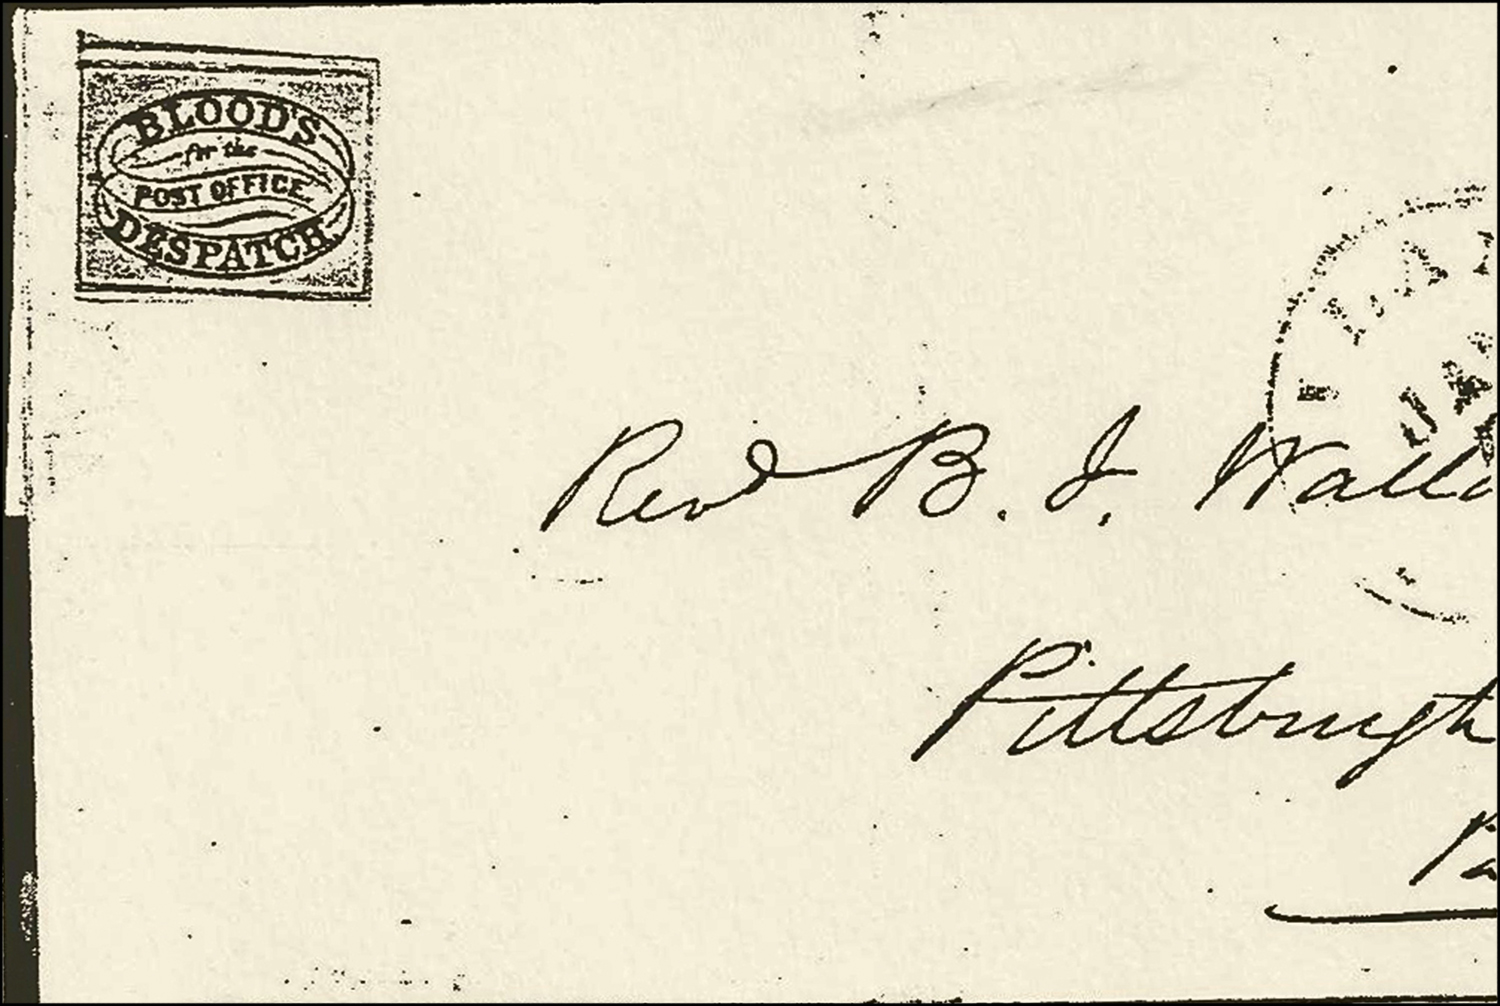 BLOOD'S
for the
POST OFFICE
DESPATCH
Revd B. J. Walla
Pittsburgh
Pa